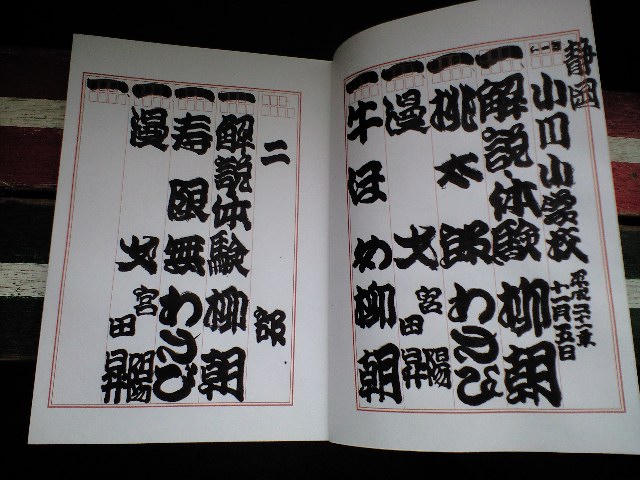 静岡
小川小学校
平成二十一年
十一月五日
一 解説・体験 柳朝
一 桃太郎 わさび
一 漫才 宮田陽昇
一 牛ほめ 柳朝
二部
一 解説体験 柳朝
一 寿限無 わさび
一 漫才 宮田陽昇
一